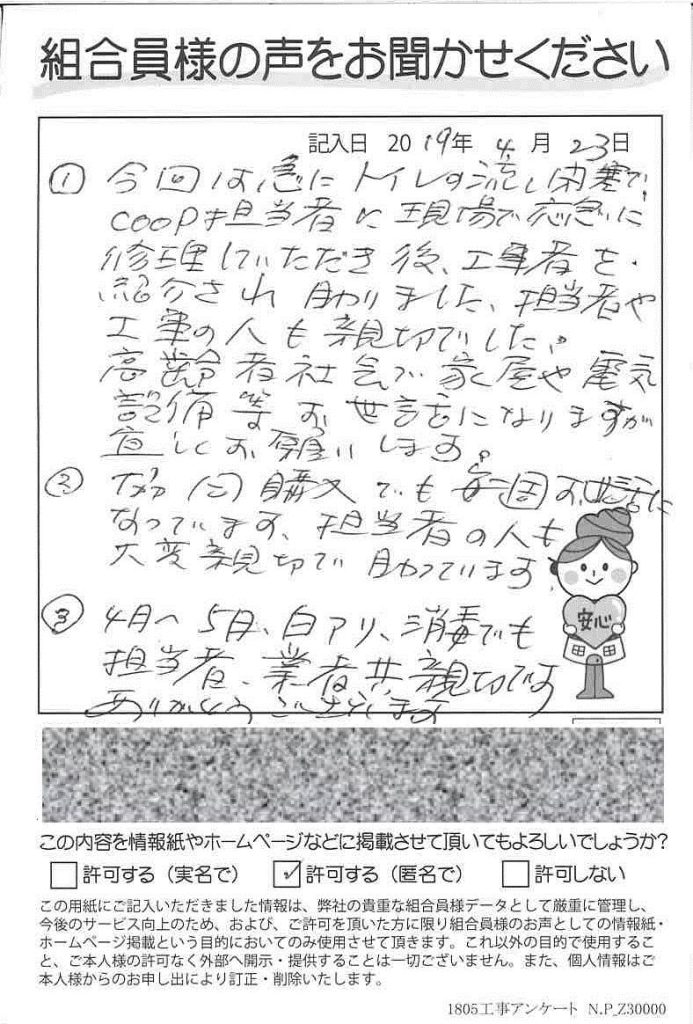 組合員様の声をお聞かせください
記入日 2019年 4月 23日
① 今回は急にトイレの流し閉塞で、
COOP担当者に現場で応急に
修理していただき後、工事者を
紹介され 助かりました、担当者や
工事の人も親切でした。
高齢者社会で家屋や電気
設備等 お世話になりますが
宜しくお願いします。
② 協同購入でも毎週お世話に
なっています、担当者の人も
大変親切で助かっています。
③ 4月へ5日、白アリ、消毒でも
担当者、業者共、親切です
ありがとうございます
安心
この内容を情報紙やホームページなどに掲載させて頂いてもよろしいでしょうか?
許可する（実名で） ✓ 許可する（匿名で） 許可しない
この用紙にご記入いただきました情報は、弊社の貴重な組合員様データとして厳重に管理し、
今後のサービス向上のため、および、ご許可を頂いた方に限り組合員様のお声としての情報紙・
ホームページ掲載という目的においてのみ使用させて頂きます。これ以外の目的で使用するこ
と、ご本人様の許可なく外部へ開示・提供することは一切ございません。また、個人情報はご
本人様からのお申し出により訂正・削除いたします。
1805工事アンケート N.P_Z30000